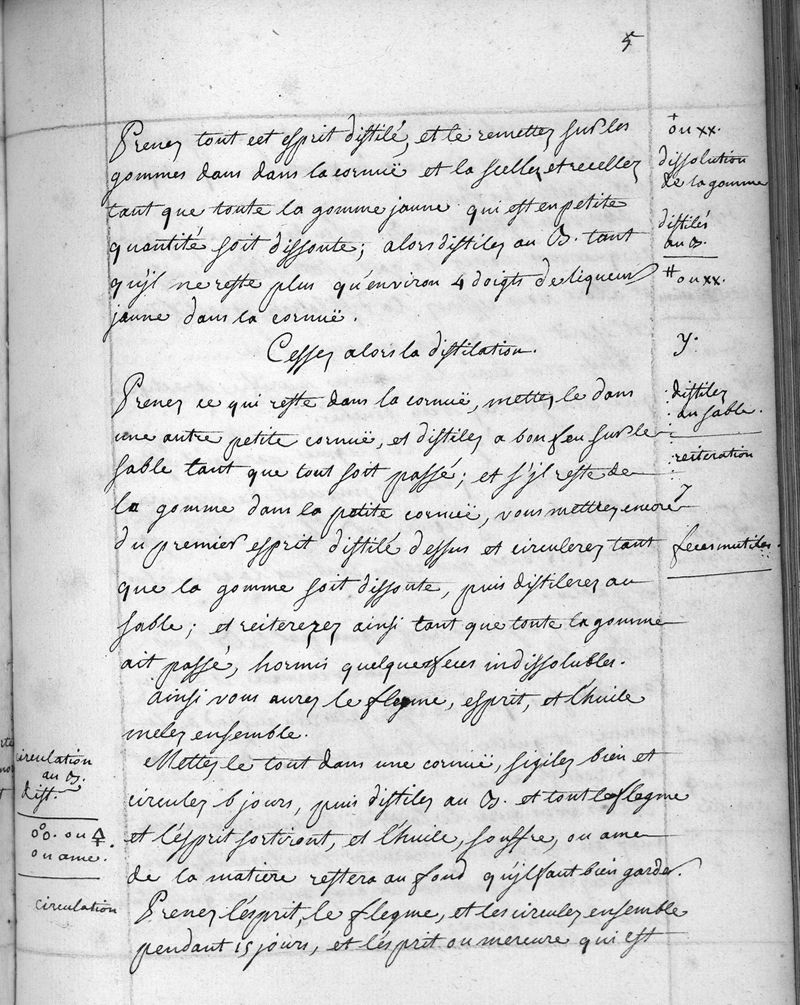 5
Prenez tout cet esprit distilé, et le remettez sur les
gommes dans dans la cornuë et la scellez et recellez
tant que toute la gomme jaune qui est en petite
quantité soit dissoute; alors distilez au B. tant
qu'jl ne reste plus qu'environ 4 doigts de liqueur
jaune dans la cornuë.
Cessez alors la distilation.
Prenez ce qui reste dans la cornuë, mettez le dans
une autre petite cornuë, et distilez a bon feu sur le
sable tant que tout soit passé; et s'jl reste de
la gomme dans la petite cornuë, vous mettrez encore
du premier esprit distilé dessus et circulerez tant
que la gomme soit dissoute, puis distilerez au
sable; et reitererez ainsi tant que toute la gomme
ait passé, hormis quelques feces indissolubles.
Ainsi vous aurez le flegme, esprit, et l'huile
melez ensemble.
Mettez le tout dans une cornuë, sigilez bien et
circulez 6 jours, puis distilez au B. et tout le flegme
et l'ésprit sortiront, et l'huile, souffre, ou ame
de la matiere restera au fond qu'jl faut bien garder.
Prenez l'ésprit, le flegme, et les circulez ensemble
pendant 15 jours, et l'ésprit ou mercure qui est
ou xx.
dissolution
de la gomme
distilés
au B.
ou xx.
y.
distilez
au sable.
reiteration
feces inutiles.
circulation
au B.
dist.
ou 🜍
ou ame.
circulation